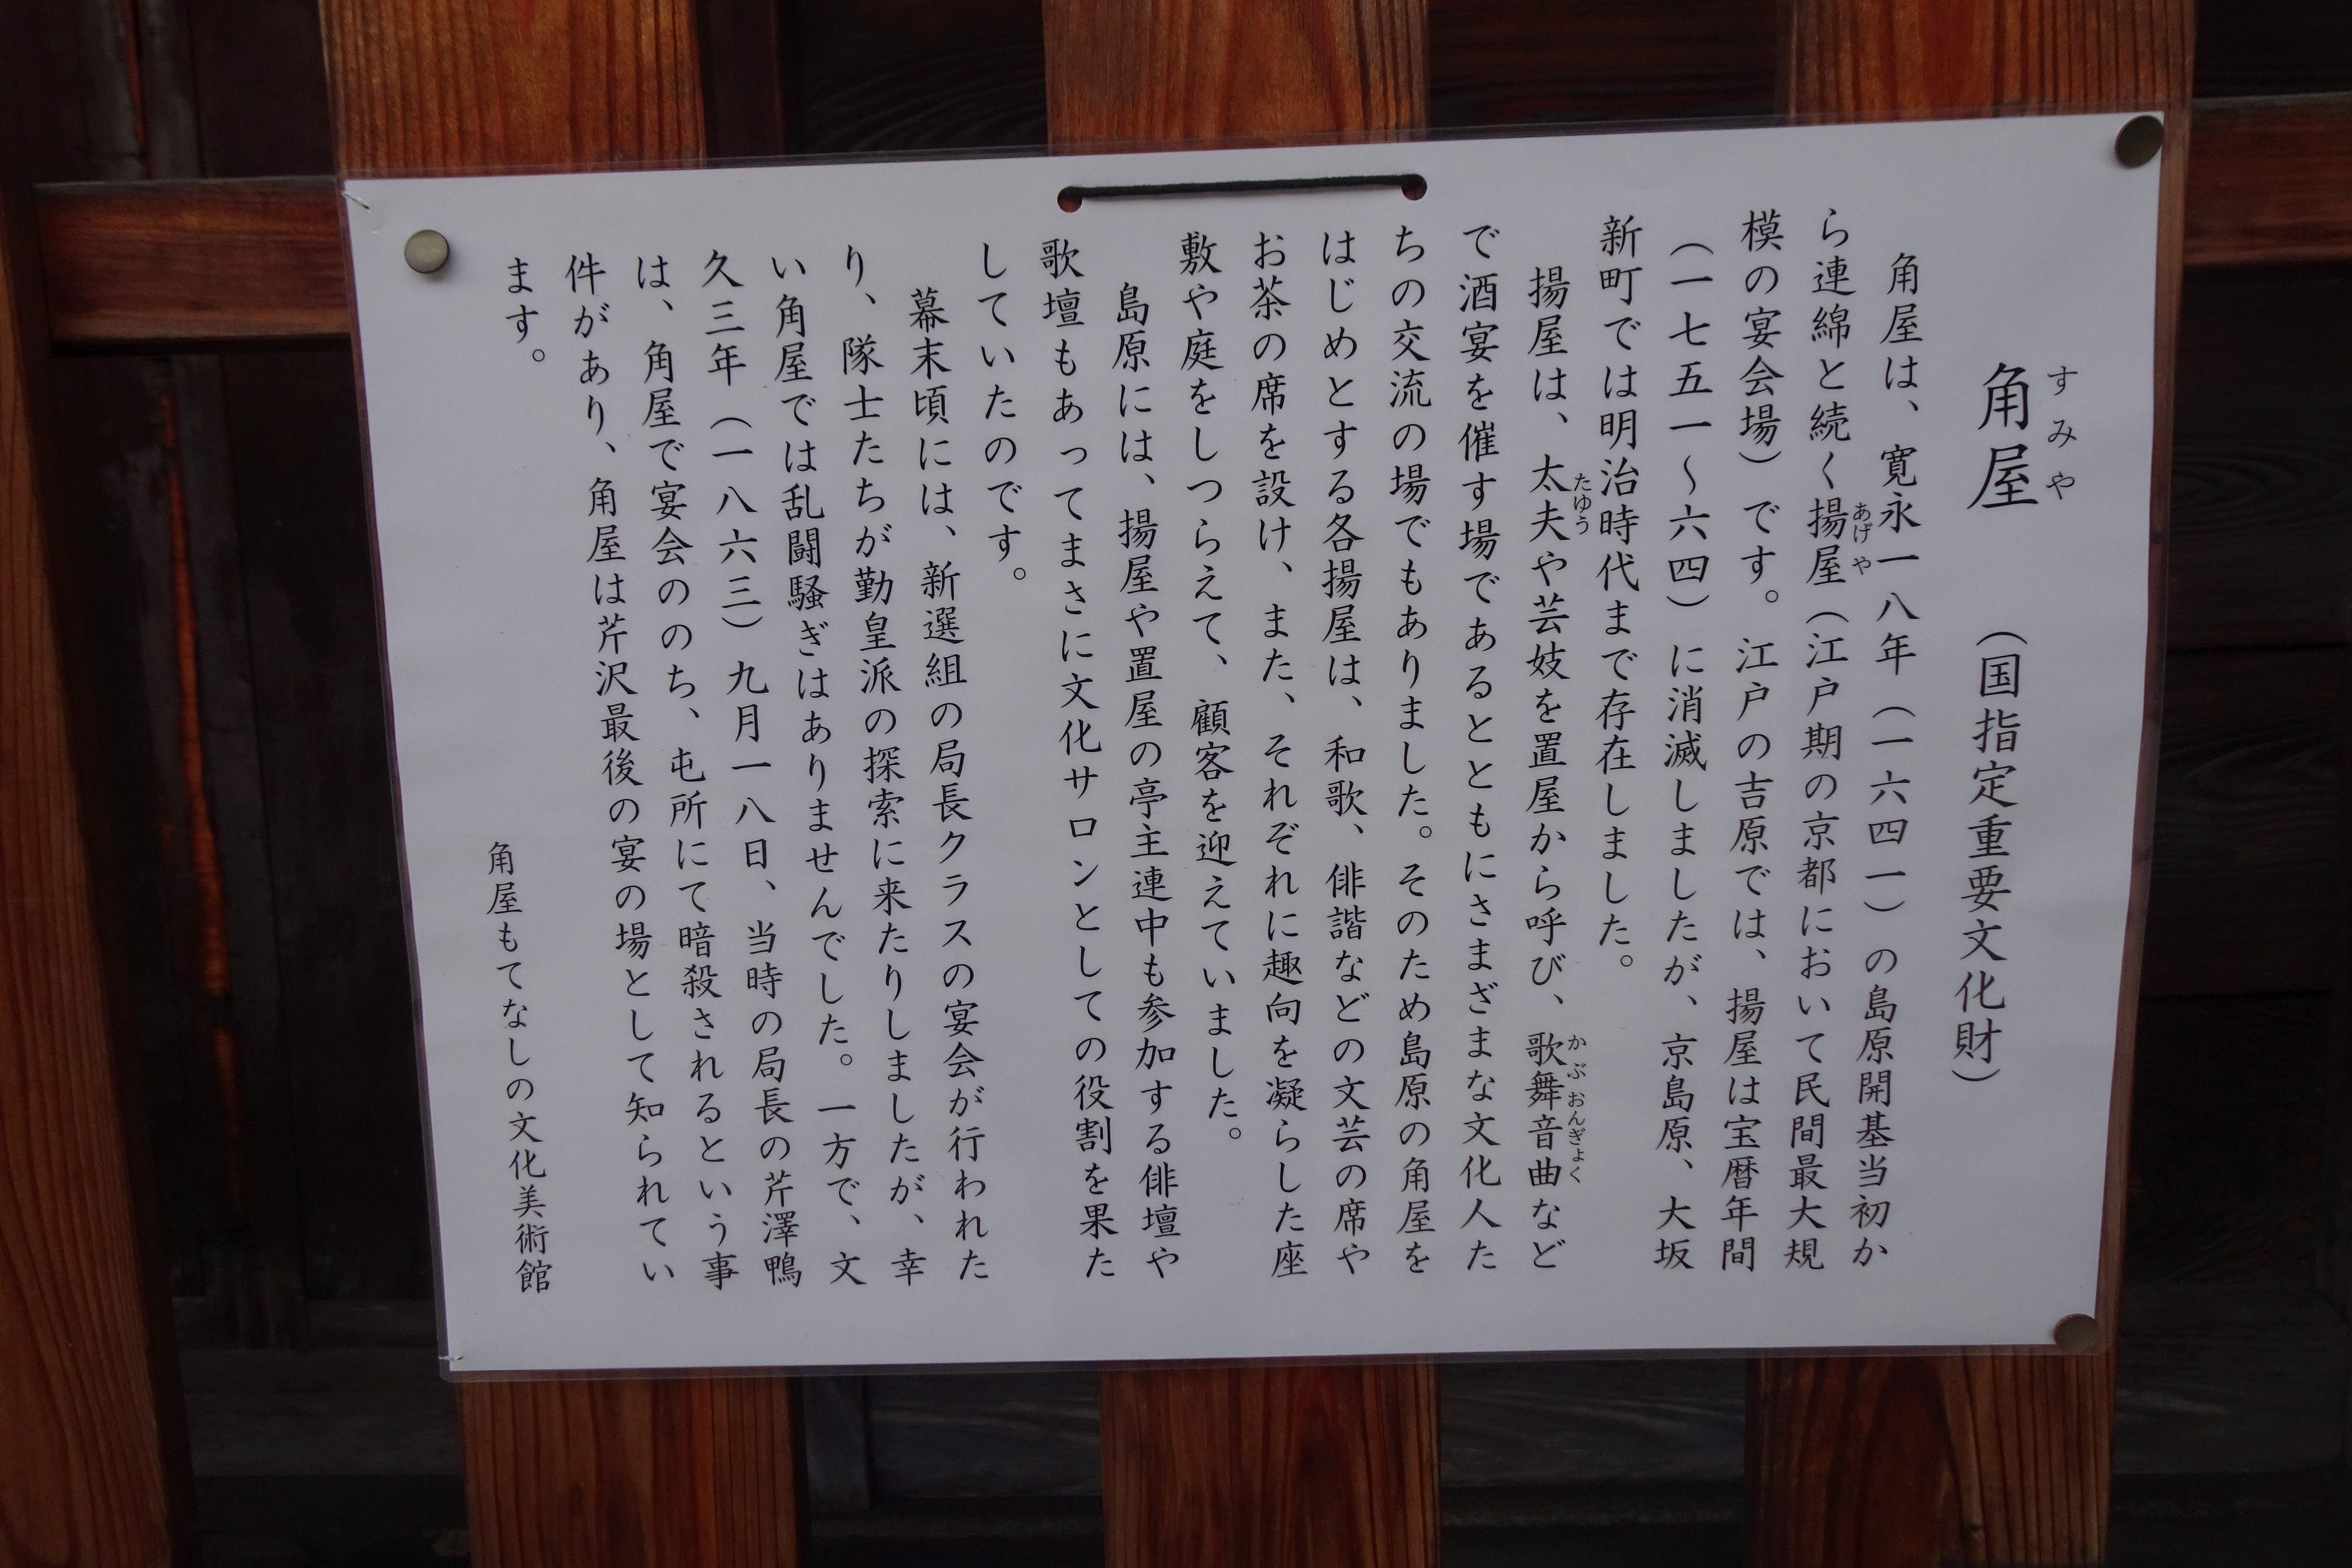 角屋 （国指定重要文化財）
すみや
角屋は、寛永一八年（一六四一）の島原開基当初か
ら連綿と続く揚屋（江戸期の京都において民間最大規
あげや
模の宴会場）です。江戸の吉原では、揚屋は宝暦年間
（一七五一〜六四）に消滅しましたが、京島原、大坂
新町では明治時代まで存在しました。
揚屋は、太夫や芸妓を置屋から呼び、歌舞音曲など
たゆう
かぶおんぎょく
で酒宴を催す場であるとともにさまざまな文化人た
ちの交流の場でもありました。そのため島原の角屋を
はじめとする各揚屋は、和歌、俳諧などの文芸の席や
お茶の席を設け、また、それぞれに趣向を凝らした座
敷や庭をしつらえて、顧客を迎えていました。
島原には、揚屋や置屋の亭主連中も参加する俳壇や
歌壇もあってまさに文化サロンとしての役割を果た
していたのです。
幕末頃には、新選組の局長クラスの宴会が行われた
り、隊士たちが勤皇派の探索に来たりしましたが、幸
い角屋では乱闘騒ぎはありませんでした。一方で、文
久三年（一八六三）九月一八日、当時の局長の芹澤鴨
は、角屋で宴会ののち、屯所にて暗殺されるという事
件があり、角屋は芹沢最後の宴の場として知られてい
ます。
角屋もてなしの文化美術館